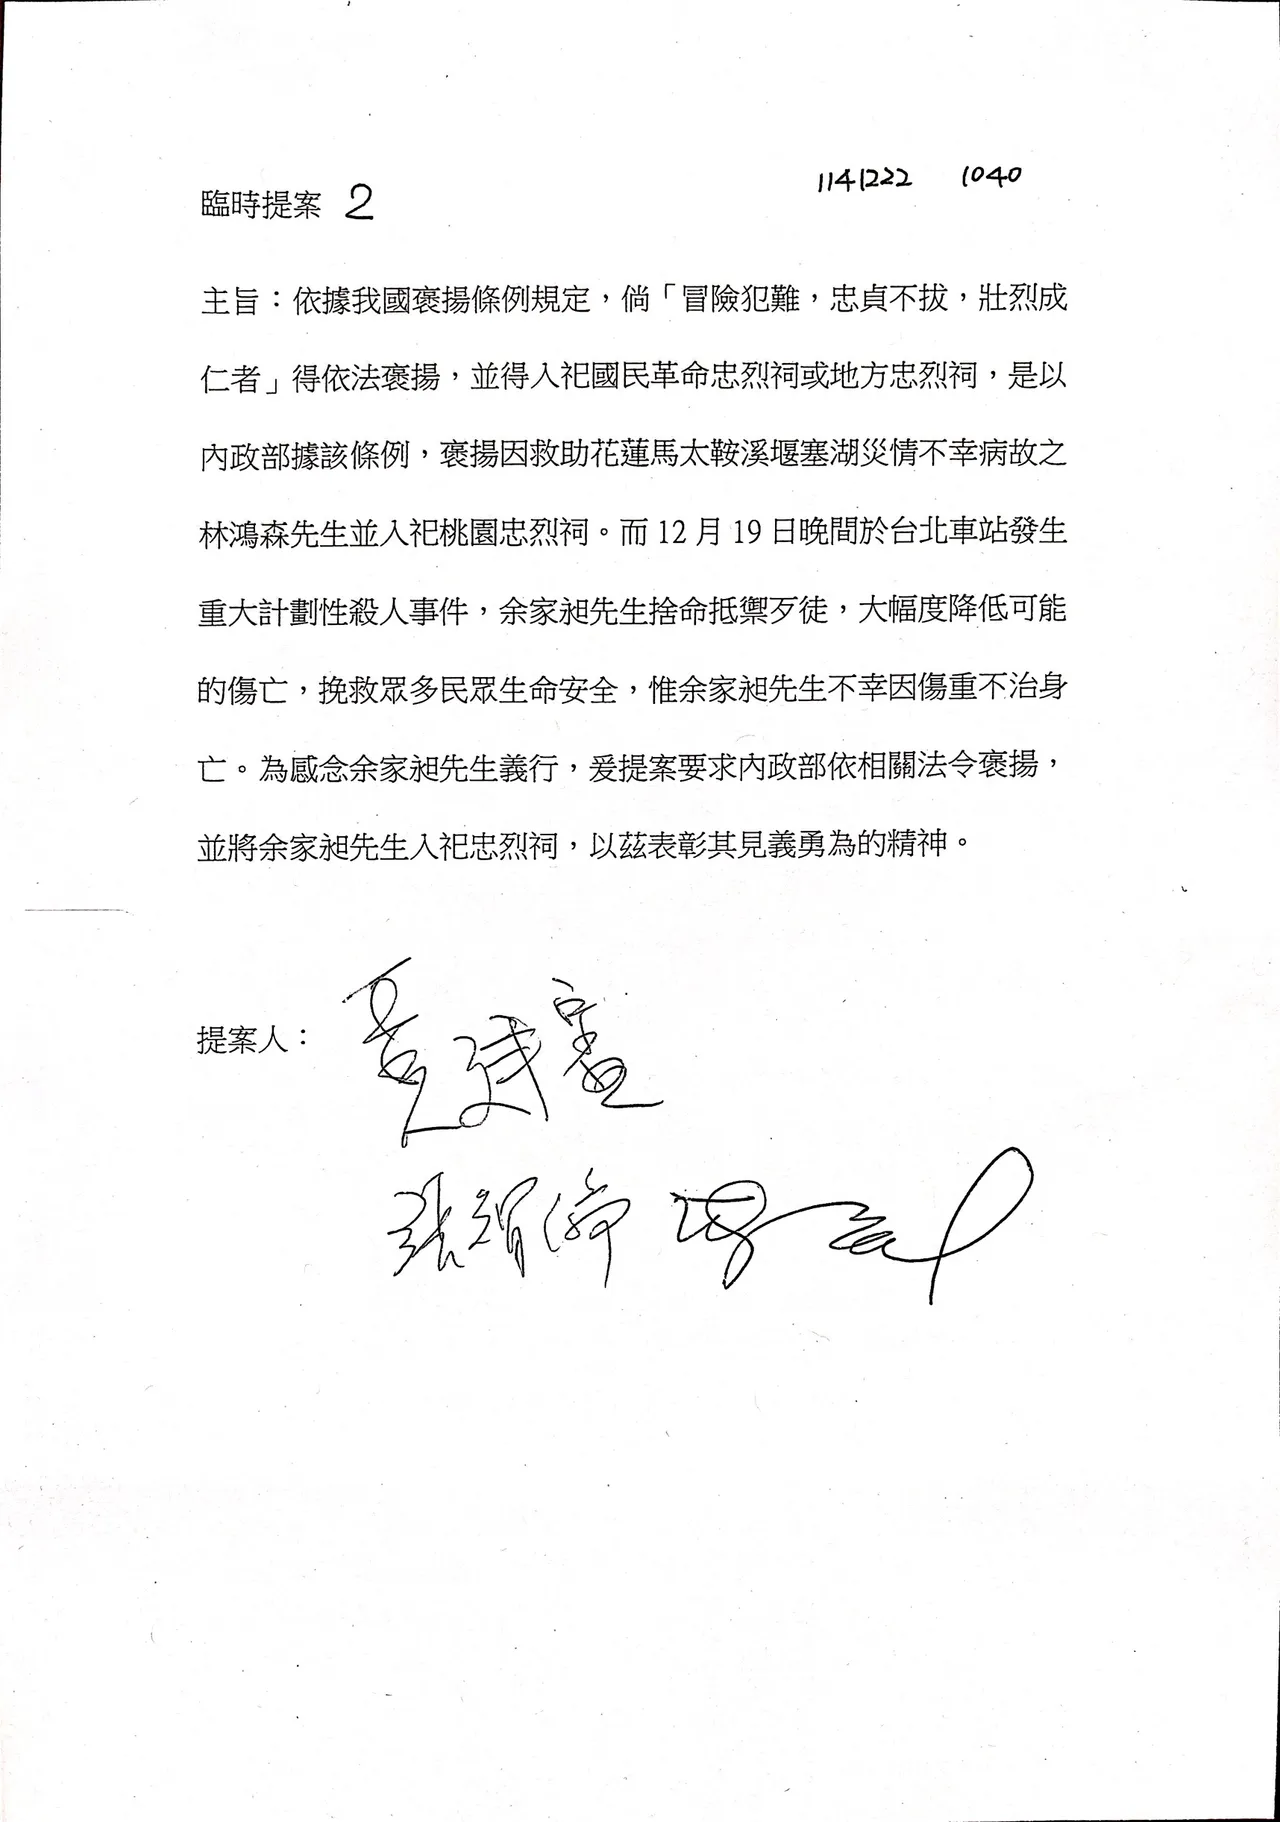 1141222 1040
臨時提案 2
主旨：依據我國褒揚條例規定，倘「冒險犯難，忠貞不拔，壯烈成
仁者」得依法褒揚，並得入祀國民革命忠烈祠或地方忠烈祠，是以
內政部據該條例，褒揚因救助花蓮馬太鞍溪堰塞湖災情不幸病故之
林鴻森先生並入祀桃園忠烈祠。而 12 月 19 日晚間於台北車站發生
重大計劃性殺人事件，余家昶先生捨命抵禦歹徒，大幅度降低可能
的傷亡，挽救眾多民眾生命安全，惟余家昶先生不幸因傷重不治身
亡。為感念余家昶先生義行，爰提案要求內政部依相關法令褒揚，
並將余家昶先生入祀忠烈祠，以茲表彰其見義勇為的精神。
提案人：
張智倫